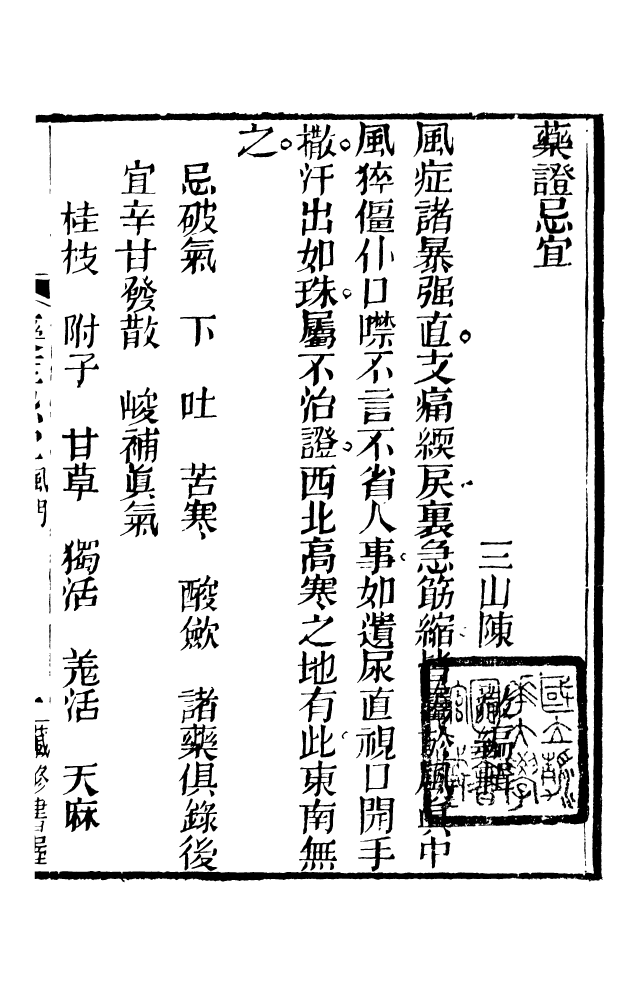 藥證忌宜
三山陳 澈編輯
風症諸暴强直。支痛緛戾裏急筋縮皆屬於風眞中
風猝僵仆口噤不言不省人事如遺尿直視口開手
撒。汗出如珠。屬不治證。西北高寒之地有此東南無
之。
忌破氣 下 吐 苦寒 酸歛 諸藥俱錄後
宜辛甘發散 峻補眞氣
桂枝 附子 甘草 獨活 羗活 天麻
風門 一 藏修書屋